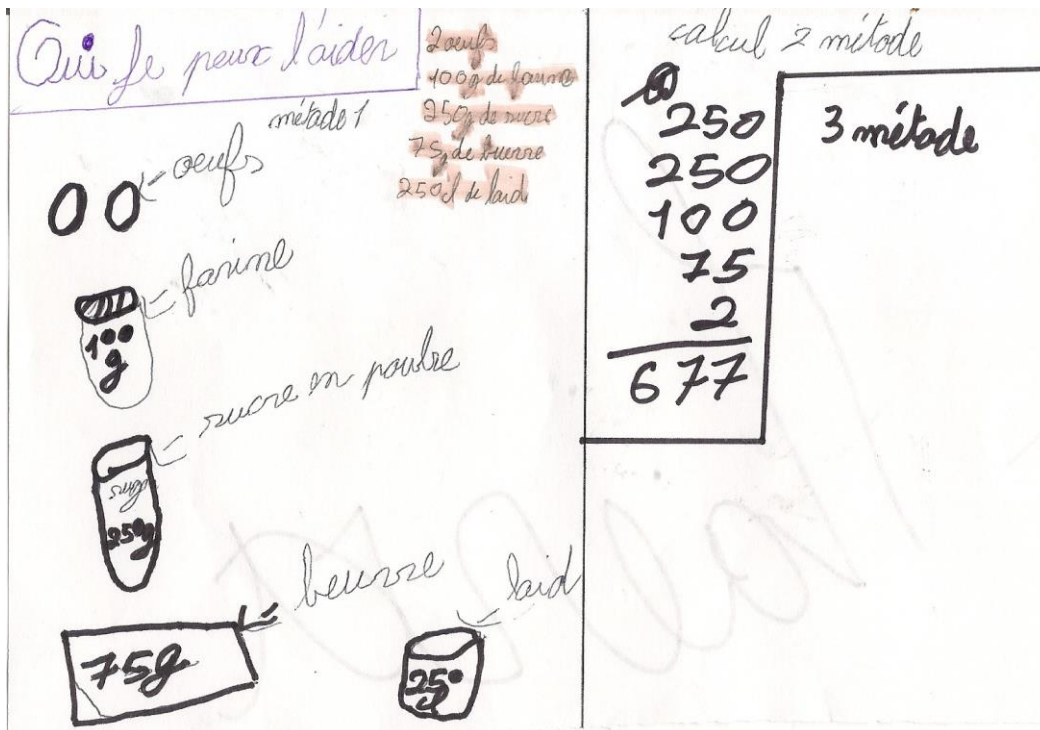 Oui je peux l'aider
2 oeufs
100g de farine
250g de sucre
75g de buerre
250cl de laid
métado 1
oeufs
farine
100
g
sucre en poubre
250g
beurre
75g
laid
250
cl
calcul 2 métode
250
250
100
75
2
677
3 métode